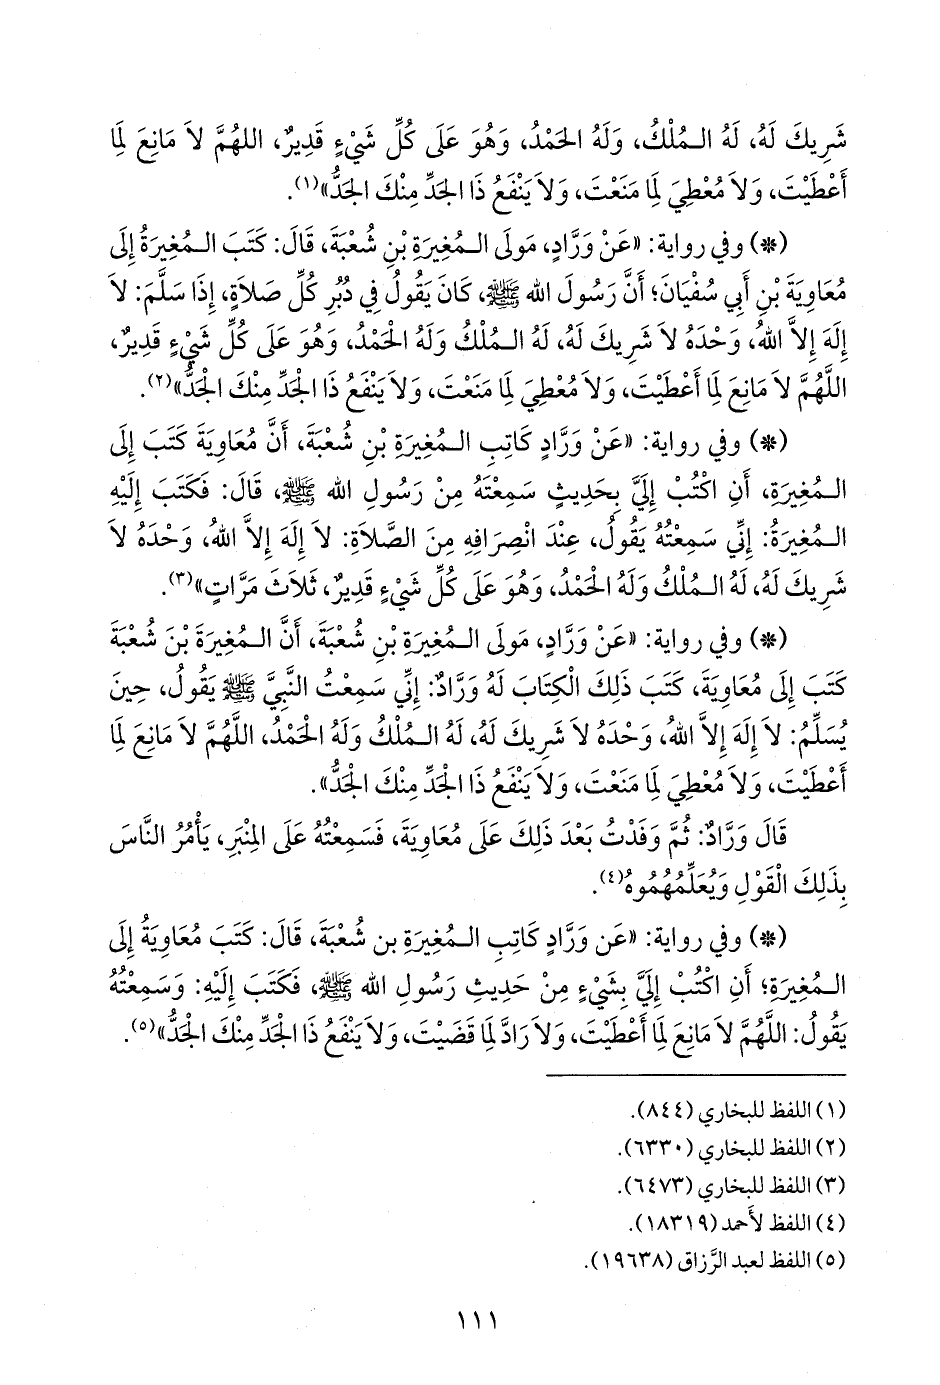 شَرِيكَ لَهُ، لَهُ الـمُلْكُ، وَلَهُ الحَمْدُ، وَهُوَ عَلَى كُلِّ شَيْءٍ قَدِيرٌ، اللهُمَّ لاَ مَانِعَ لِمَا
أَعْطَيْتَ، وَلاَ مُعْطِيَ لِمَا مَنَعْتَ، وَلاَ يَنْفَعُ ذَا الجَدِّ مِنْكَ الجَدُّ»(١).
(*) وفي رواية: «عَنْ وَرَّادٍ، مَولَى الـمُغِيرَةِ بْنِ شُعْبَةَ، قَالَ: كَتَبَ الـمُغِيرَةُ إِلَى
مُعَاوِيَةَ بْنِ أَبِي سُفْيَانَ؛ أَنَّ رَسُولَ الله ﷺ، كَانَ يَقُولُ فِي دُبُرِ كُلِّ صَلاَةٍ، إِذَا سَلَّمَ: لاَ
إِلَهَ إِلاَّ اللهُ، وَحْدَهُ لاَ شَرِيكَ لَهُ، لَهُ الـمُلْكُ وَلَهُ الحَمْدُ، وَهُوَ عَلَى كُلِّ شَيْءٍ قَدِيرٌ،
اللَّهُمَّ لاَ مَانِعَ لِمَا أَعْطَيْتَ، وَلاَ مُعْطِيَ لِمَا مَنَعْتَ، وَلاَ يَنْفَعُ ذَا الجَدِّ مِنْكَ الجَدُّ»(٢).
(*) وفي رواية: «عَنْ وَرَّادٍ كَاتِبِ الـمُغِيرَةِ بْنِ شُعْبَةَ، أَنَّ مُعَاوِيَةَ كَتَبَ إِلَى
الـمُغِيرَةِ، أَنِ اكْتُبْ إِلَيَّ بِحَدِيثٍ سَمِعْتَهُ مِنْ رَسُولِ الله ﷺ، قَالَ: فَكَتَبَ إِلَيْهِ
الـمُغِيرَةُ: إِنِّي سَمِعْتُهُ يَقُولُ، عِنْدَ انْصِرَافِهِ مِنَ الصَّلاَةِ: لاَ إِلَهَ إِلاَّ اللهُ، وَحْدَهُ لاَ
شَرِيكَ لَهُ، لَهُ الـمُلْكُ وَلَهُ الحَمْدُ، وَهُوَ عَلَى كُلِّ شَيْءٍ قَدِيرٌ، ثَلاَثَ مَرَّاتٍ»(٣).
(*) وفي رواية: «عَنْ وَرَّادٍ، مَولَى الـمُغِيرَةِ بْنِ شُعْبَةَ، أَنَّ الـمُغِيرَةَ بْنَ شُعْبَةَ
كَتَبَ إِلَى مُعَاوِيَةَ، كَتَبَ ذَلِكَ الْكِتَابَ لَهُ وَرَّادٌ: إِنِّي سَمِعْتُ النَّبِيَّ ﷺ يَقُولُ، حِينَ
يُسَلِّمُ: لاَ إِلَهَ إِلاَّ اللهُ، وَحْدَهُ لاَ شَرِيكَ لَهُ، لَهُ الـمُلْكُ وَلَهُ الحَمْدُ، اللَّهُمَّ لاَ مَانِعَ لِمَا
أَعْطَيْتَ، وَلاَ مُعْطِيَ لِمَا مَنَعْتَ، وَلاَ يَنْفَعُ ذَا الجَدِّ مِنْكَ الجَدُّ».
قَالَ وَرَّادٌ: ثُمَّ وَفَدْتُ بَعْدَ ذَلِكَ عَلَى مُعَاوِيَةَ، فَسَمِعْتُهُ عَلَى المِنْبَرِ، يَأْمُرُ النَّاسَ
بِذَلِكَ الْقَوْلِ وَيُعَلِّمُهُمُوهُ(٤).
(*) وفي رواية: «عَن وَرَّادٍ كَاتِبِ الـمُغِيرَةِ بن شُعْبَةَ، قَالَ: كَتَبَ مُعَاوِيَةُ إِلَى
الـمُغِيرَةِ؛ أَنِ اكْتُبْ إِلَيَّ بِشَيْءٍ مِنْ حَدِيثِ رَسُولِ الله ﷺ، فَكَتَبَ إِلَيْهِ: وَسَمِعْتُهُ
يَقُولُ: اللَّهُمَّ لاَ مَانِعَ لِمَا أَعْطَيْتَ، وَلاَ رَادَّ لِمَا قَضَيْتَ، وَلاَ يَنْفَعُ ذَا الجَدِّ مِنكَ الجَدُّ»(٥).
(١) اللفظ للبخاري (٨٤٤).
(٢) اللفظ للبخاري (٦٣٣٠).
(٣) اللفظ للبخاري (٦٤٧٣).
(٤) اللفظ لأَحمد (١٨٣١٩).
(٥) اللفظ لعبد الرَّزاق (١٩٦٣٨).
١١١